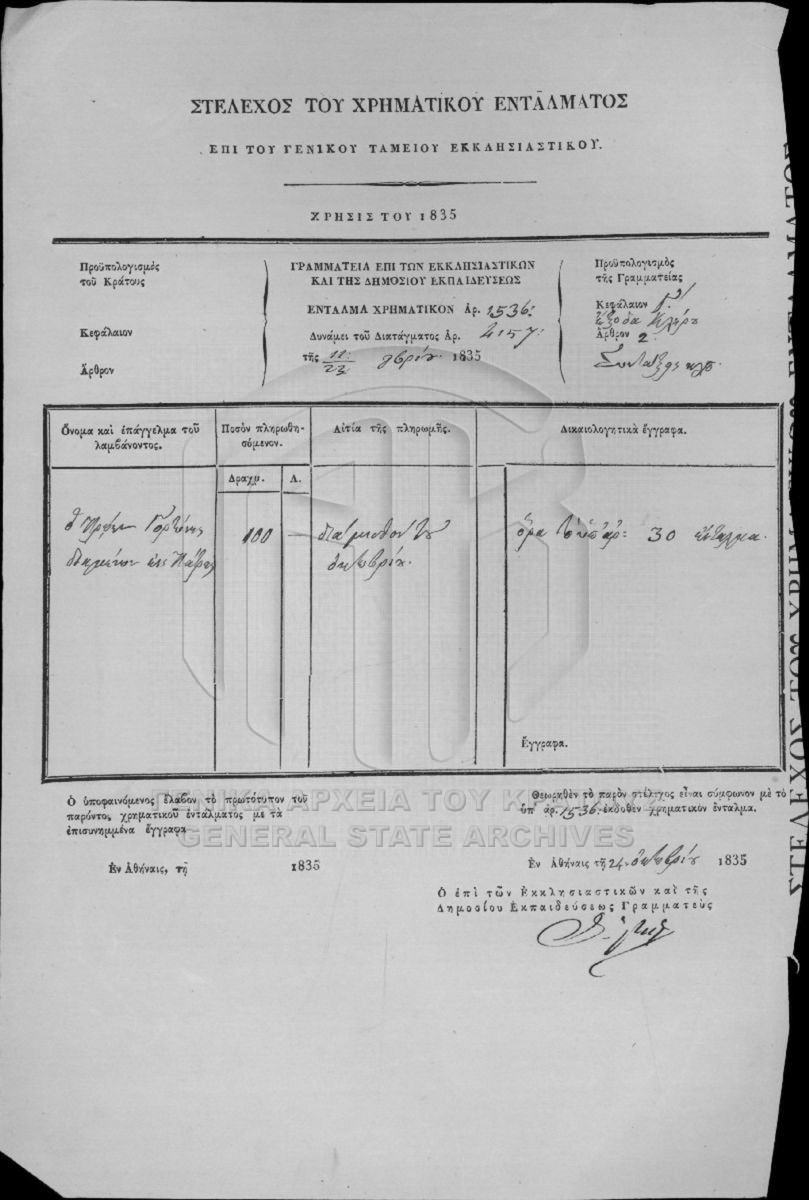 ΣΤΕΛΕΧΟΣ ΤΟΥ ΧΡΗΜΑΤΙΚΟΥ ΕΝΤΑΛΜΑΤΟΣ
ΕΠΙ ΤΟΥ ΓΕΝΙΚΟΥ ΤΑΜΕΙΟΥ ΕΚΚΛΗΣΙΑΣΤΙΚΟΥ.
ΧΡΗΣΙΣ ΤΟΥ 1835
Προϋπολογισμὸς
τοῦ Κράτους
Κεφάλαιον
Ἄρθρον
ΓΡΑΜΜΑΤΕΙΑ ΕΠΙ ΤΩΝ ΕΚΚΛΗΣΙΑΣΤΙΚΩΝ
ΚΑΙ ΤΗΣ ΔΗΜΟΣΙΟΥ ΕΚΠΑΙΔΕΥΣΕΩΣ
ΕΝΤΑΛΜΑ ΧΡΗΜΑΤΙΚΟΝ Ἀρ. 1536:
Δυνάμει τοῦ Διατάγματος Ἀρ. 4157:
τῆς 11/23 1835
Προϋπολογισμὸς
τῆς Γραμματείας
Κεφάλαιον Γ'.
Ἔξοδα Κλήρου
Ἄρθρον 2.
Συντάξεις κλπ.
Ὄνομα καὶ ἐπάγγελμα τοῦ
λαμβάνοντος.
Ποσὸν πληρωθη-
σόμενον.
Αἰτία τῆς πληρωμῆς.
Δικαιολογητικὰ ἔγγραφα.
Δραχμ.
Λ.
ὁ Γορτύνης
εἰς
100 —
διὰ μισθὸν τοῦ
ὀκτωβρίου.
ὅρα ὑπ' ἀρ: 30 ἔνταλμα.
Ἔγγραφα.
Ὁ ὑποφαινόμενος ἔλαβον τὸ πρωτότυπον τοῦ
παρόντος χρηματικοῦ ἐντάλματος μὲ τὰ
ἐπισυνημμένα ἔγγραφα
Ἐν Ἀθήναις, τῇ 1835
Θεωρηθὲν τὸ παρὸν στέλεχος εἶναι σύμφωνον μὲ τὸ
ὑπ' ἀρ. 1536. ἐκδοθὲν χρηματικὸν ἔνταλμα.
Ἐν Ἀθήναις τῇ 24 ὀκτωβρίου 1835
Ὁ ἐπὶ τῶν Ἐκκλησιαστικῶν καὶ τῆς
Δημοσίου Ἐκπαιδεύσεως Γραμματεὺς
ΓΕΝΙΚΑ ΑΡΧΕΙΑ ΤΟΥ ΚΡΑΤΟΥΣ
GENERAL STATE ARCHIVES
ΣΤΕΛΕΧΟΣ ΤΟΥ ΧΡΗΜΑΤΙΚΟΥ ΕΝΤΑΛΜΑΤΟΣ